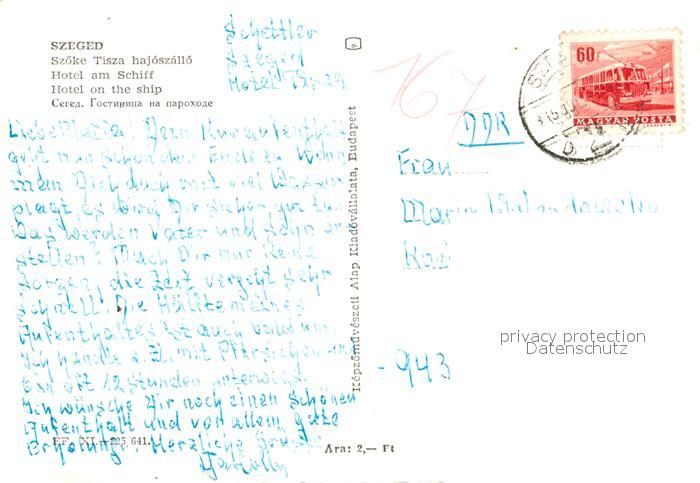 SZEGED
Szőke Tisza hajószálló
Hotel am Schiff
Hotel on the ship
Сегед. Гостиница на пароходе
Schettler
Szeged
Hotel Tisza
Liebe Maria! Dein Kuraufenthalt
geht nun schon dem Ende zu. Wenn
man Dich auch mit viel Wasser
plagt, es wird Dir sicher gut tun.
Was werden Vater und Sohn an-
stellen? Mach Dir nur keine
Sorgen, die Zeit vergeht sehr
schnell. Die Hälfte meines
Aufenthaltes ist auch bald um.
Ich z. Z. mit
oft 12 Stunden unterwegs.
Ich wünsche Dir noch einen schönen
Aufenthalt und vor allem gute
Erholung. Herzliche Grüße
EF. XI.—225/641.
Ára: 2,— Ft
Képzőművészeti Alap Kiadóvállalata, Budapest
167
60f
MAGYAR POSTA
DDR
Frau
Maria
943
privacy protection
Datenschutz